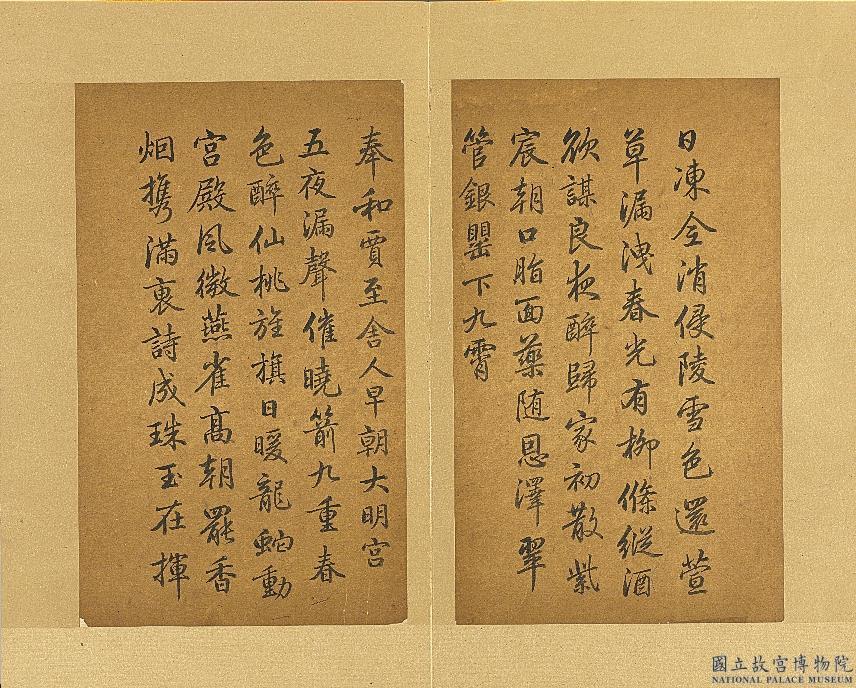 日凍全消侵陵雪色還萱
草漏洩春光有柳條縱酒
欲謀良夜醉歸家初散紫
宸朝口脂面藥随恩澤翠
管銀罌下九霄
奉和賈至舍人早朝大明宫
五夜漏聲催曉箭九重春
色醉仙桃旌旗日暖龍蛇動
宫殿風微燕雀高朝罷香
烟携滿裏詩成珠玉在揮
國立故宮博物院
NATIONAL PALACE MUSEUM